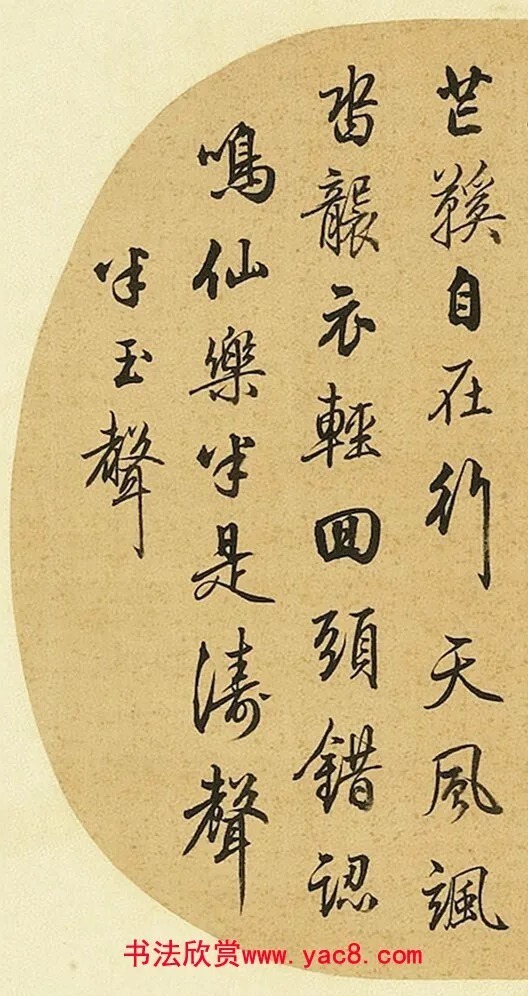 芒鞵自在行天風颯
沓襲衣輕回頭錯認
鳴仙樂半是濤聲
半玉聲
书法欣赏www.yac8.com